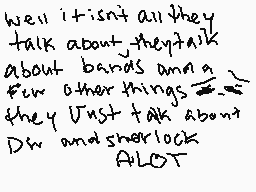 well it isn't all they
talk about they talk
about bands and a
few other things =_=
they Just talk about
DW and sherlock
ALOT